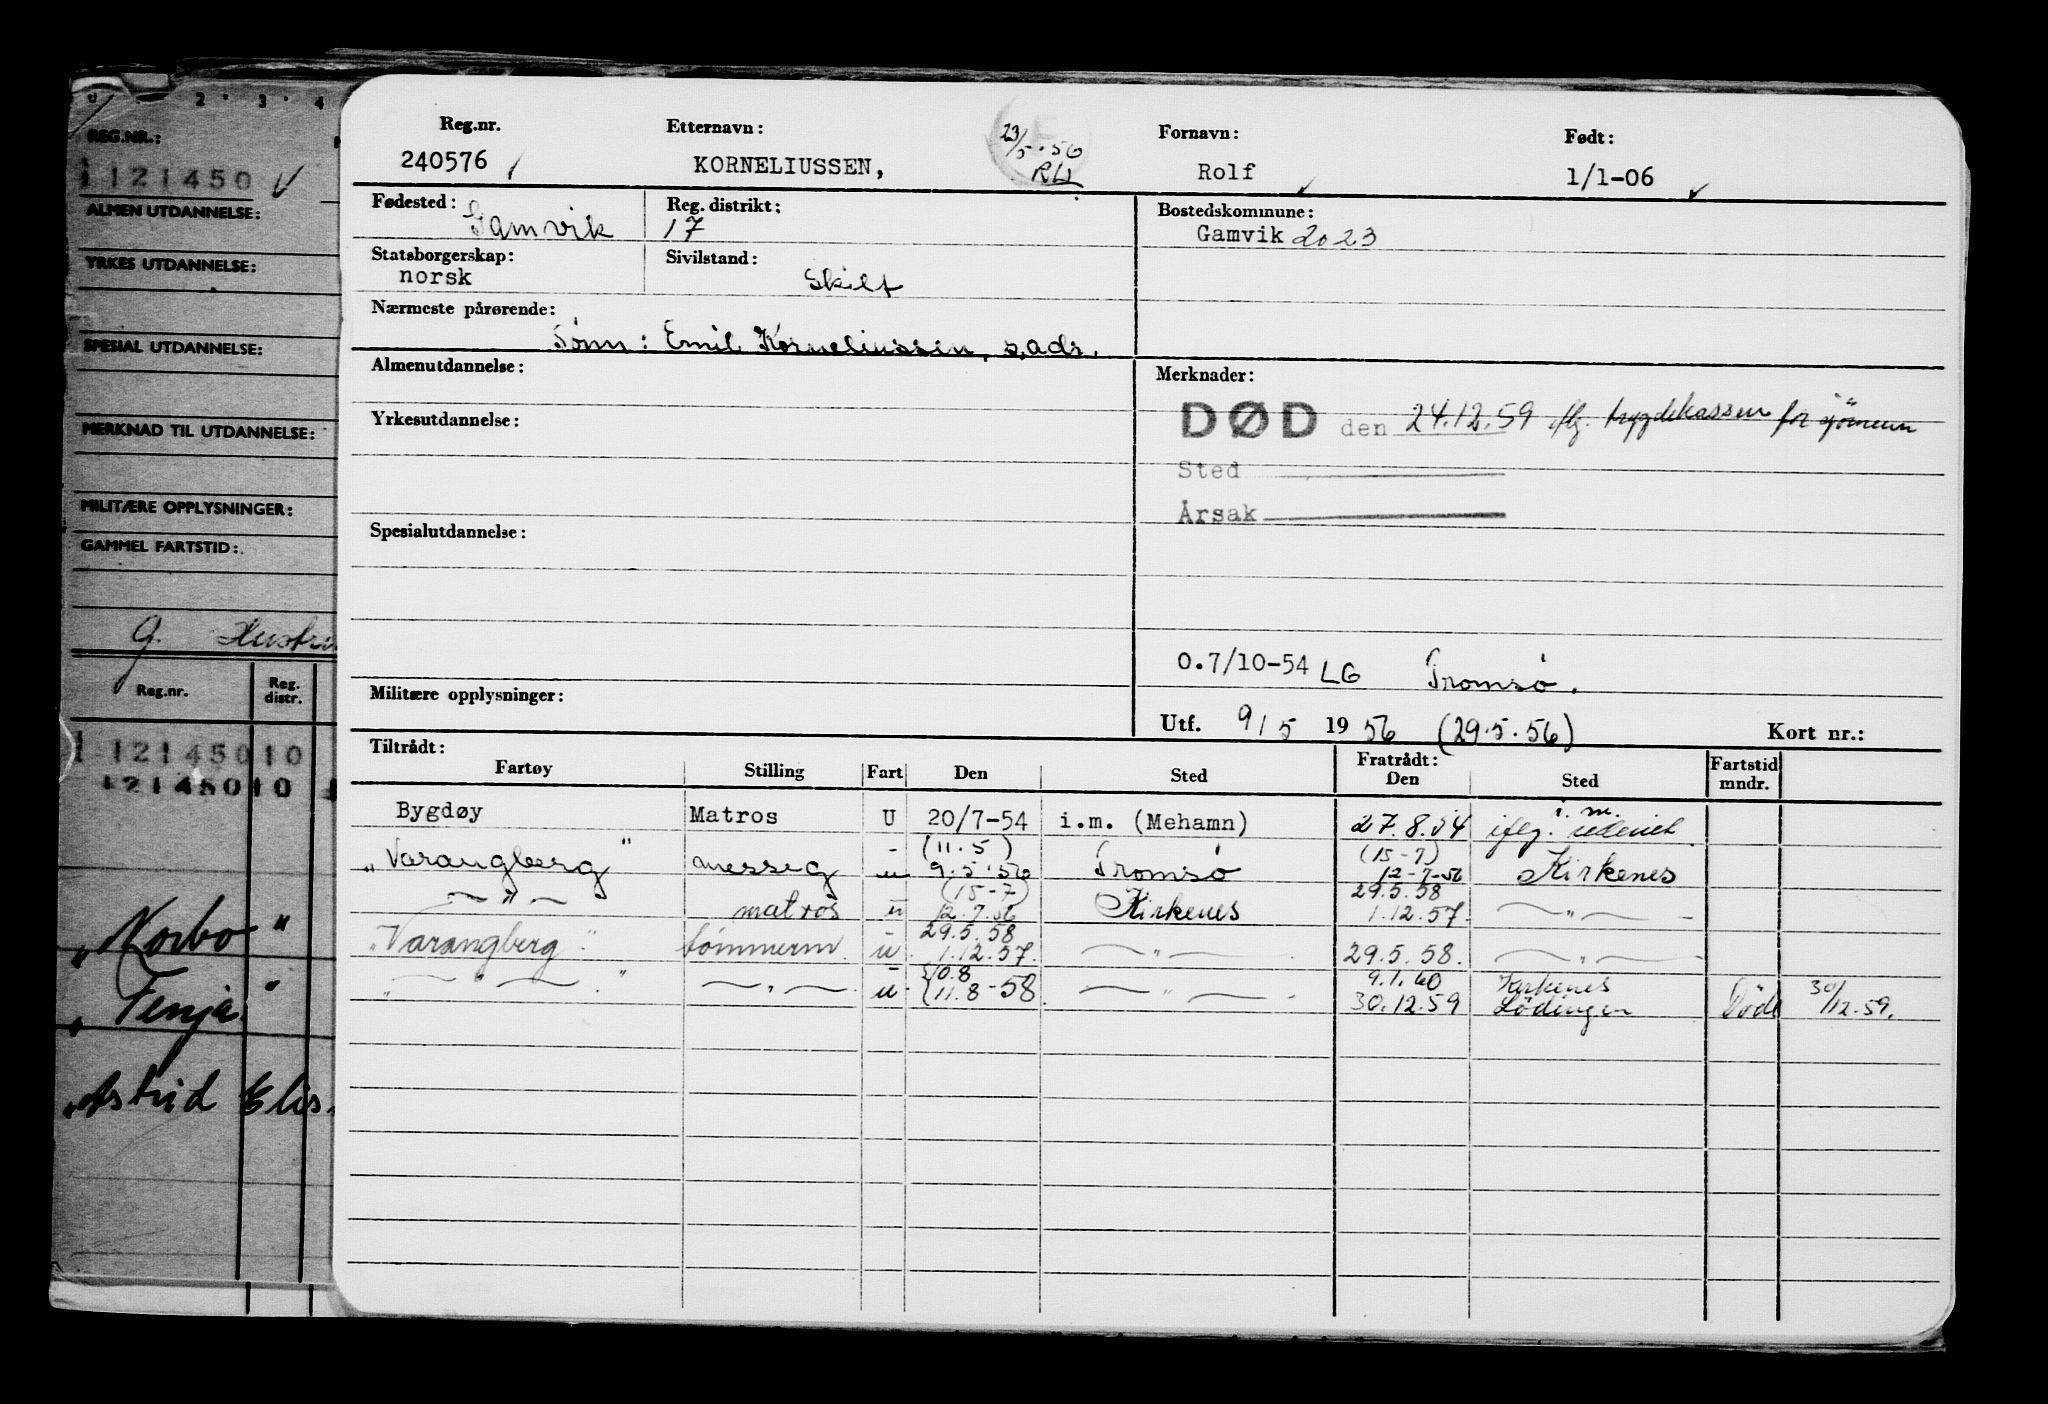 2 . 3 . 4
REG.NR.:
121450
ALMEN UTDANNELSE:
YRKES UTDANNELSE:
SPESIAL UTDANNELSE:
MERKNAD TIL UTDANNELSE:
MILITÆRE OPPLYSNINGER:
GAMMEL FARTSTID:
g. Hustru
Reg.nr. Reg. distr.
121450 10
121450 10
"Korbo"
"Fenja"
"Astrid Elis
Reg.nr. Etternavn: 23/5.56 Fornavn: Født:
240576 KORNELIUSSEN, Rolf 1/1-06
Fødested: Gamvik Reg. distrikt: 17 Bostedskommune:
Gamvik 2023
Statsborgerskap: norsk Sivilstand: Skilt
Nærmeste pårørende:
Sønn: Emil Korneliussen, s.ads.
Almenutdannelse: Merknader:
DØD den 24.12.59 iflg. trygdekassen for sjömenn
Yrkesutdannelse:
Sted
Årsak
Spesialutdannelse:
0.7/10-54 LG Tromsø.
Militære opplysninger:
Utf. 9/5 1956 (29.5.56) Kort nr.:
Tiltrådt: Fratrådt: Fartstid
Fartøy Stilling Fart Den Sted Den Sted mndr.
i.m.
Bygdøy Matros U 20/7-54 i.m. (Mehamn) 27.8.54 iflg. rederiet
- (11.5) (15-7)
"Varangberg" messeg u 9.5.56 Tromsø 12-7-56 Kirkenes
(15-7) 29.5.58
— " — matros u 12.7.56 Kirkenes 1.12.57. — " —
- 29.5.58
"Varangberg". tömmerm. u 1.12.57. — " — 29.5.58. — " —
- 10.8 9.1.60 Kirkenes
" — " — " — " — u. 11.8-58 — " — 30.12.59 Lödingen Död 30/12.59.